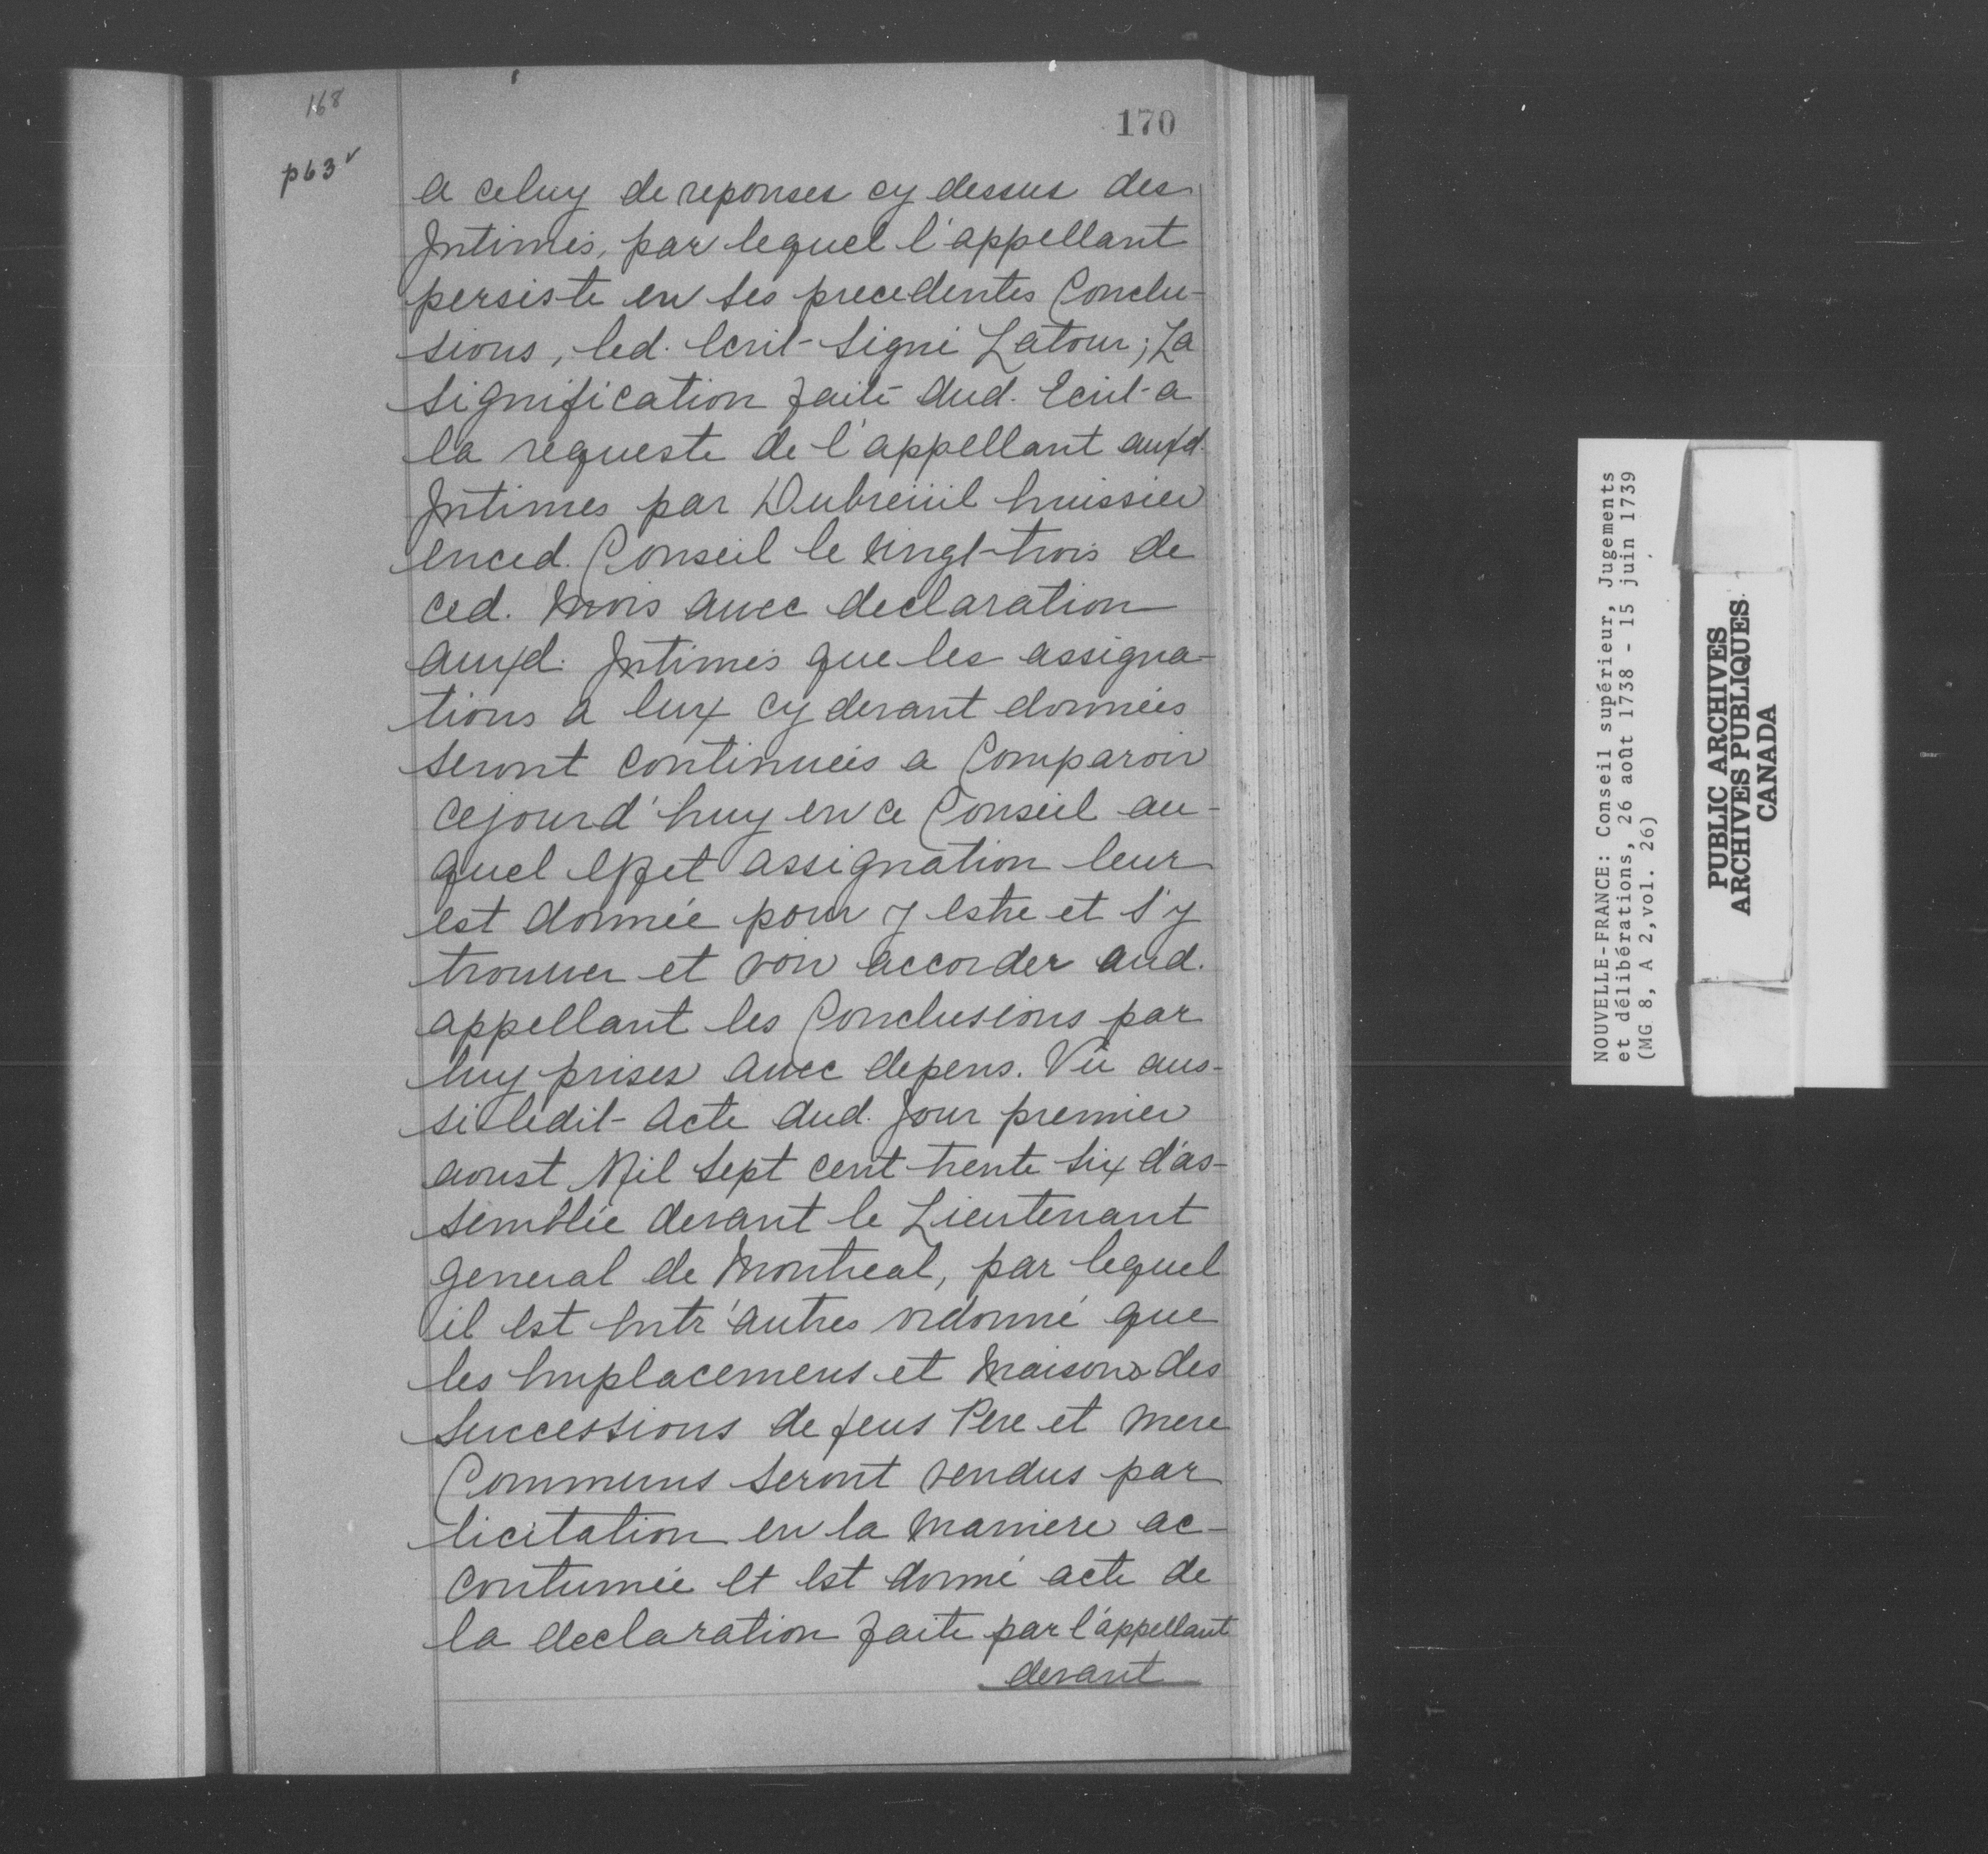 168
170
p63v
a celuy de reponses cy dessus des
Intimés, par lequel l'appellant
persiste en ses precedentes Conclu-
sions, led. Ecrit signé Latour; La
signification faite dud. Ecrit a
la requeste de l'appellant auxd.
Intimes par Dubreüil huissier
enced. Conseil le vingt-trois de
ced. Mois avec declaration
auxd. Intimés que les assigna-
tions a eux cy devant données
seront continuées a Comparoir
cejourd'huy en ce Conseil au-
quel effet assignation leur
est donnée pour y estre et s'y
trouver et voir accorder aud.
appellant les Conclusions par
luy prises avec depens. Vû aus-
si ledit Acte dud. Jour premier
aoust Mil sept cent trente six d'as-
semblée devant le Lieutenant
general de Montreal, par lequel
il est Entr'autres ordonné que
les Emplacemens et Maisons des
successions de feus Pere et mere
Communs seront vendus par
licitation en la Maniere ac-
coutumée et est donné acte de
la declaration faite par l'appellant
devant
NOUVELLE-FRANCE: Conseil supérieur, Jugements
et délibérations, 26 août 1738 - 15 juin 1739
(MG 8, A 2, vol. 26)
PUBLIC ARCHIVES
ARCHIVES PUBLIQUES
CANADA